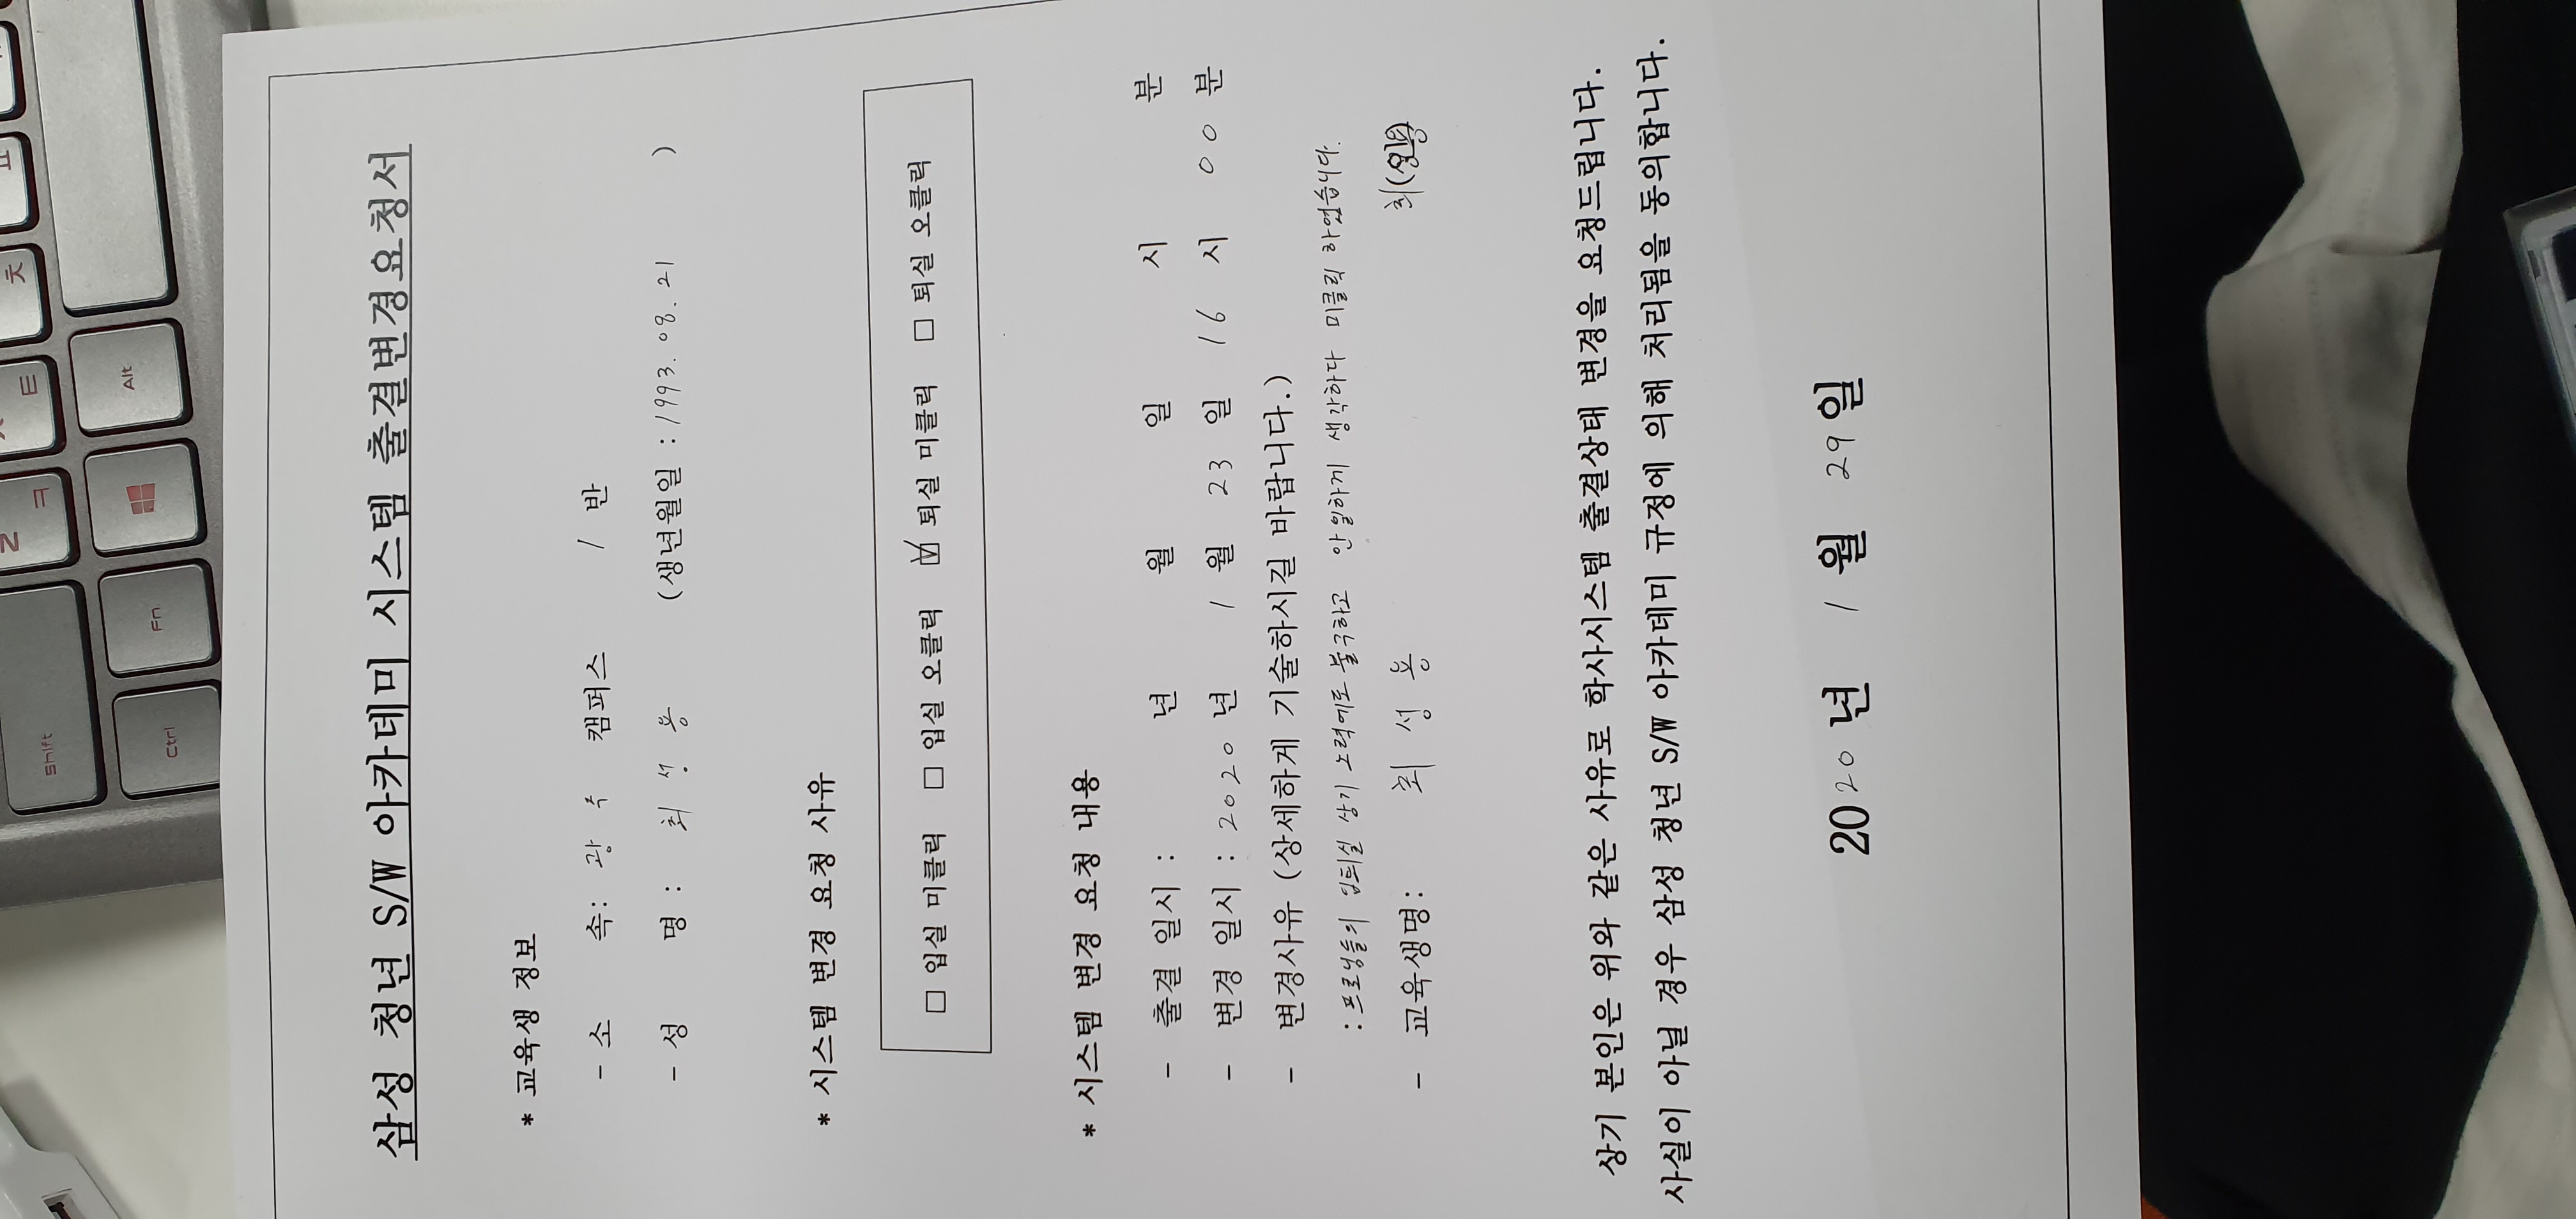 Shift ㅋ ㅌ ㅊ ㅍ
Ctrl Fn Alt
삼성 청년 S/W 아카데미 시스템 출결변경요청서
* 교육생 정보
- 소 속: 광주 캠퍼스 1 반
- 성 명 : 최성용 (생년월일 : 1993. 08. 21 )
* 시스템 변경 요청 사유
□ 입실 미클릭 □ 입실 오클릭 ☑ 퇴실 미클릭 □ 퇴실 오클릭
* 시스템 변경 요청 내용
- 출결 일시 : 년 월 일 시 분
- 변경 일시 : 2020 년 1 월 23 일 16 시 00 분
- 변경사유 (상세하게 기술하시길 바랍니다.)
: 프로님들의 입퇴실 상기 노력에도 불구하고 안일하게 생각하다 미클릭 하였습니다.
- 교육생명: 최성용 최성용 (인)
상기 본인은 위와 같은 사유로 학사시스템 출결상태 변경을 요청드립니다.
사실이 아닐 경우 삼성 청년 S/W 아카데미 규정에 의해 처리됨을 동의합니다.
2020 년 1 월 29 일